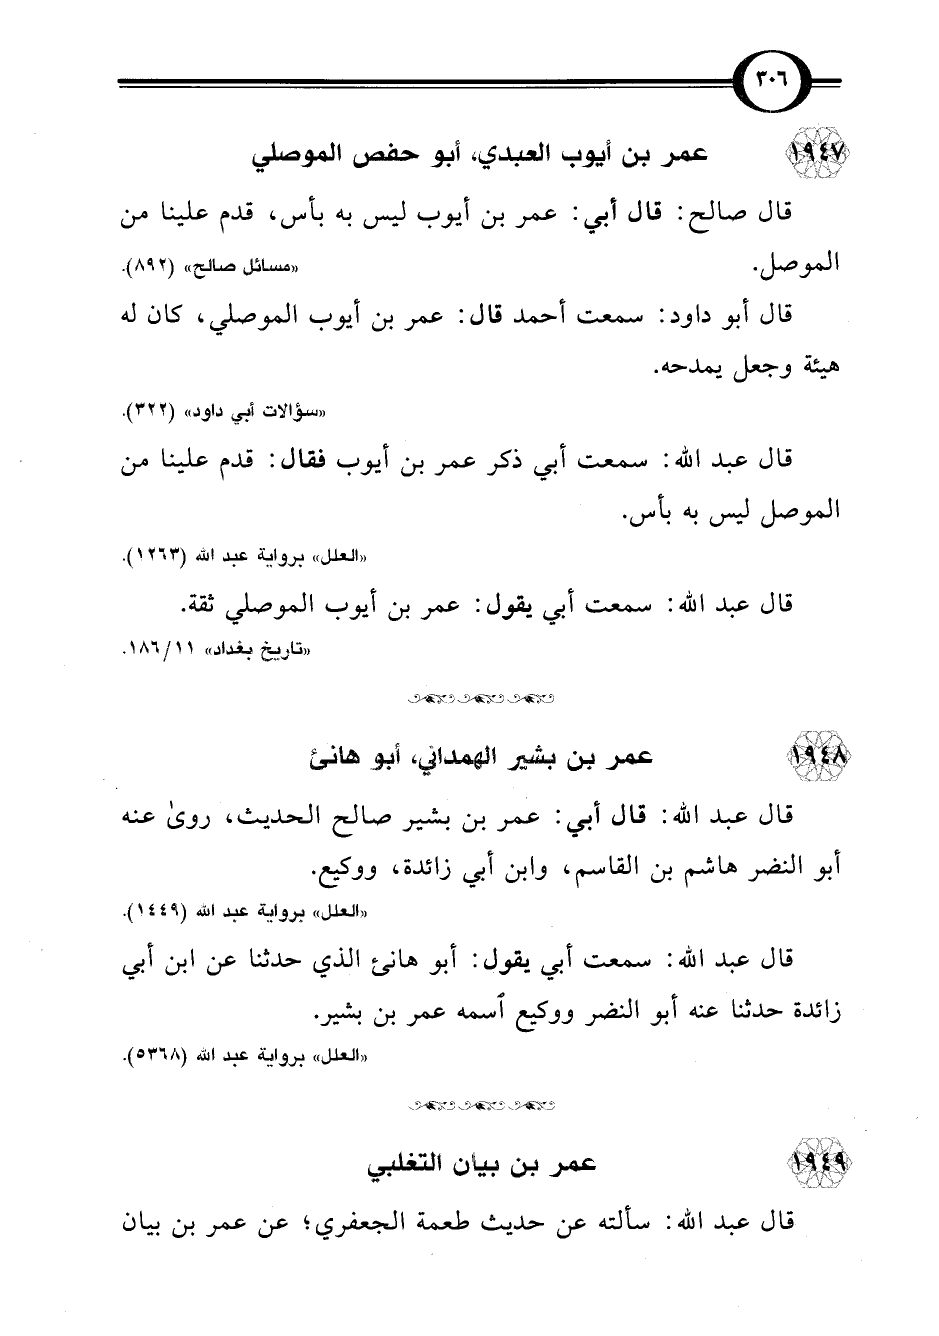 ٣٠٦
١٩٤٧ عمر بن أيوب العبدي، أبو حفص الموصلي
قال صالح: قال أبي: عمر بن أيوب ليس به بأس، قدم علينا من
الموصل. «مسائل صالح» (٨٩٢).
قال أبو داود: سمعت أحمد قال: عمر بن أيوب الموصلي، كان له
هيئة وجعل يمدحه.
«سؤالات أبي داود» (٣٢٢).
قال عبد الله: سمعت أبي ذكر عمر بن أيوب فقال: قدم علينا من
الموصل ليس به بأس.
«العلل» برواية عبد الله (١٢٦٣).
قال عبد الله: سمعت أبي يقول: عمر بن أيوب الموصلي ثقة.
«تاريخ بغداد» ١١/١٨٦.
١٩٤٨ عمر بن بشير الهمداني، أبو هانئ
قال عبد الله: قال أبي: عمر بن بشير صالح الحديث، روىٰ عنه
أبو النضر هاشم بن القاسم، وابن أبي زائدة، ووكيع.
«العلل» برواية عبد الله (١٤٤٩).
قال عبد الله: سمعت أبي يقول: أبو هانئ الذي حدثنا عن ابن أبي
زائدة حدثنا عنه أبو النضر ووكيع ٱسمه عمر بن بشير.
«العلل» برواية عبد الله (٥٣٦٨).
١٩٤٩ عمر بن بيان التغلبي
قال عبد الله: سألته عن حديث طعمة الجعفري؛ عن عمر بن بيان